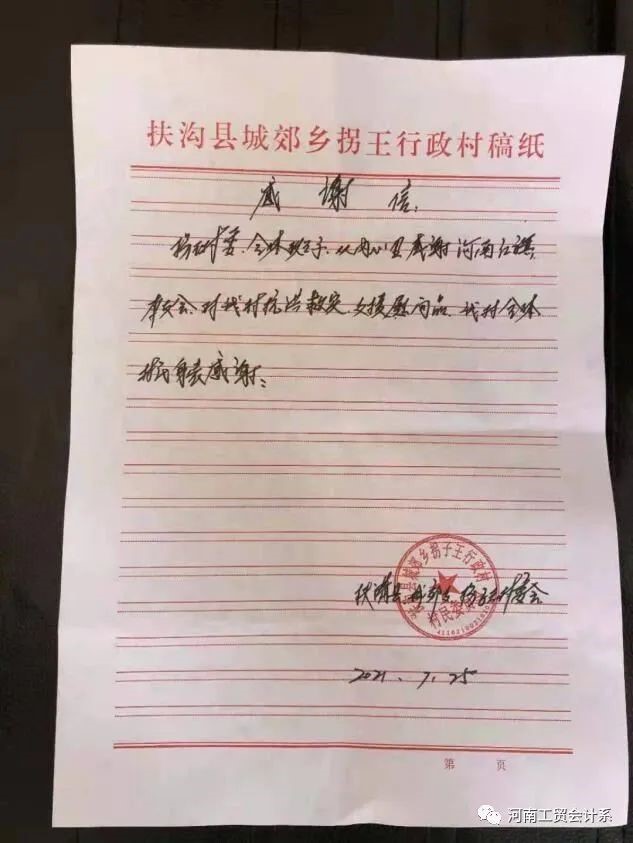 扶沟县城郊乡拐王行政村稿纸
感谢信:
村委、全体班子、从内心里感谢河南红旗
委会、对我村抗洪救灾、支援慰问品、我村全体
村民身表感谢:
扶沟县城郊乡拐子王行政村
村民委员会
扶沟县城郊乡拐子王村委会
2021.7.25
第 页
河南工贸会计系